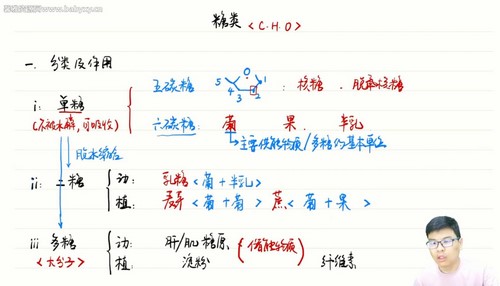 糖类 <C.H.O>
一. 分类及作用
五碳糖 5 4 3 2 1 : 核糖 . 脱氧核糖
i: 单糖
(不被水解,可吸收)
六碳糖: 葡 果 半乳
→主要供能物质/多糖的基本单位
脱水缩合
ii: 二糖
动: 乳糖 <葡 + 半乳>
植: 麦芽 <葡 + 葡> 蔗 <葡 + 果>
iii 多糖
<大分子>
动: 肝/肌糖原 (储能物质)
植: 淀粉 纤维素